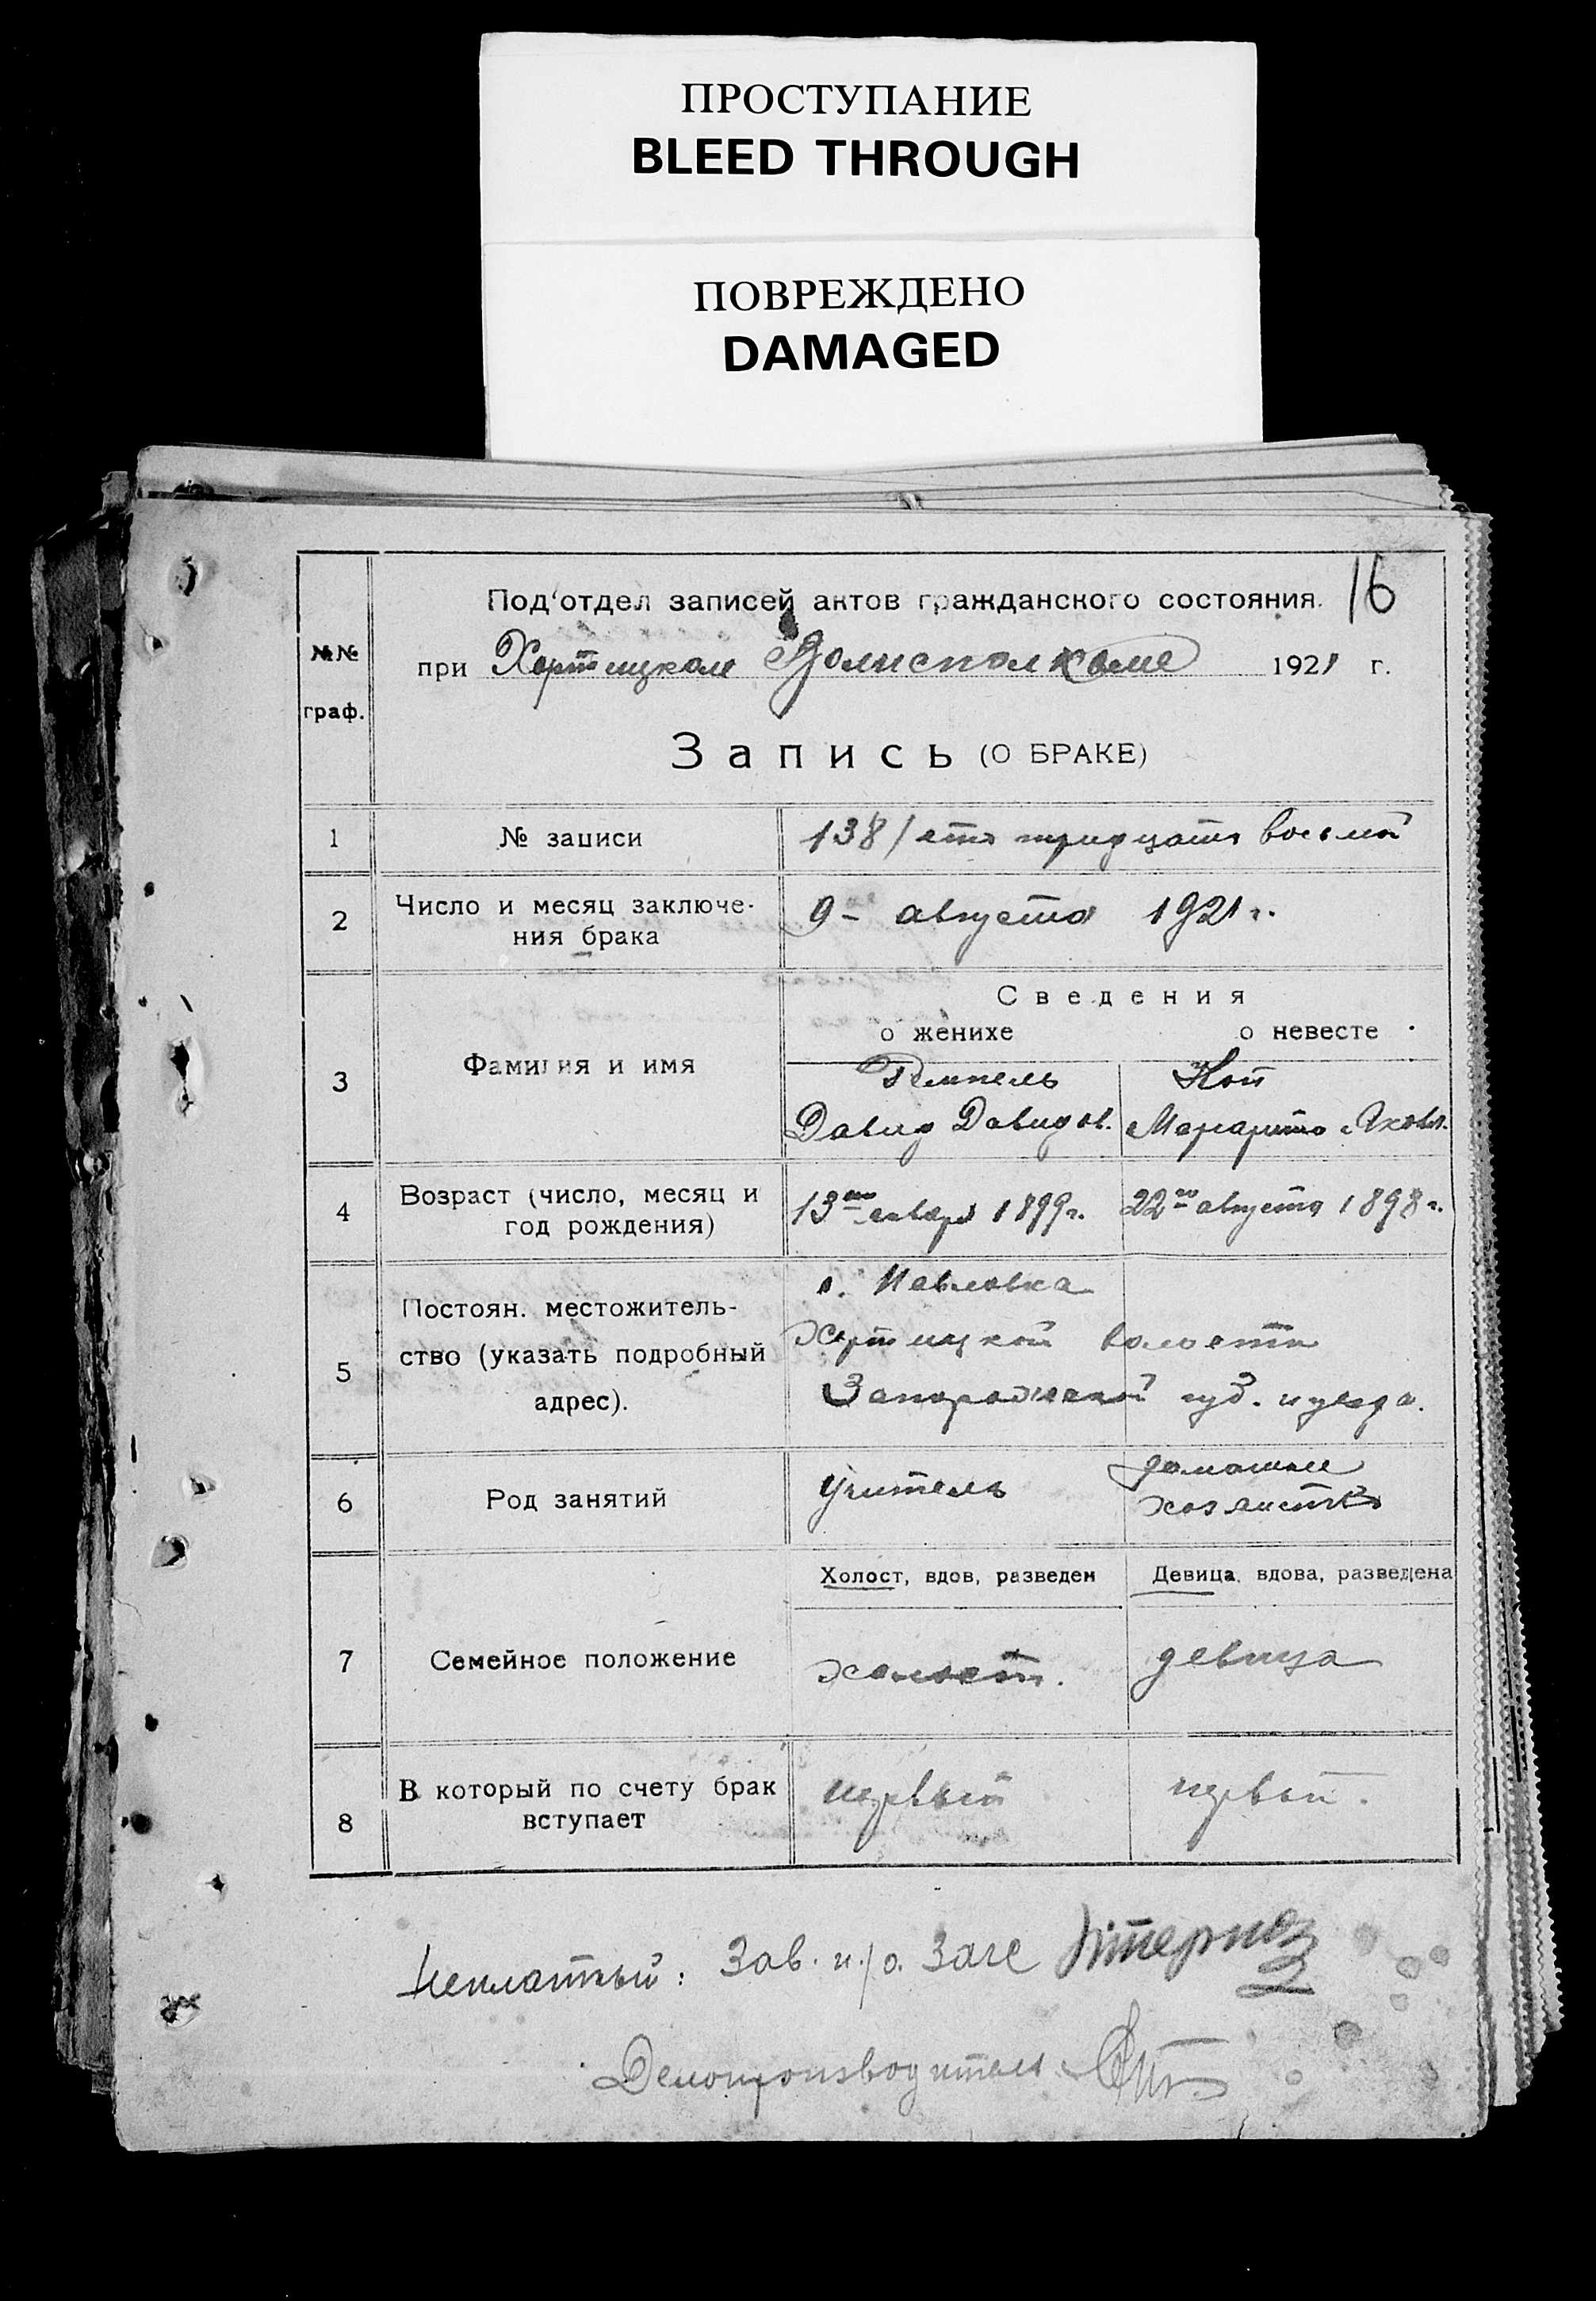 ПРОСТУПАНИЕ
BLEED THROUGH
ПОВРЕЖДЕНО
DAMAGED
16
Под'отдел записей актов гражданского состояния.
№№ граф.
при Хортицком Волисполкоме 1921 г.
Запись (О БРАКЕ)
1 № записи 138/сто тридцать восьмой
2 Число и месяц заключе-
ния брака 9- августа 1921 г.
Сведения
о женихе о невесте
3 Фамилия и имя Темпель Коп
Давид Давидов. Маргарита Яковл.
4 Возраст (число, месяц и
год рождения) 13го января 1899 г. 22го августа 1898 г.
5 Постоян. местожитель-
ство (указать подробный
адрес).
с. Павловка
Хортицкой волости
Запорожской губ. и уезда.
6 Род занятий учитель домашнее
хозяйство
Холост, вдов, разведен Девица, вдова, разведена
7 Семейное положение холост. девица
8 В который по счету брак
вступает первый первый.
Зав. п/о. Загс
Делопроизводитель